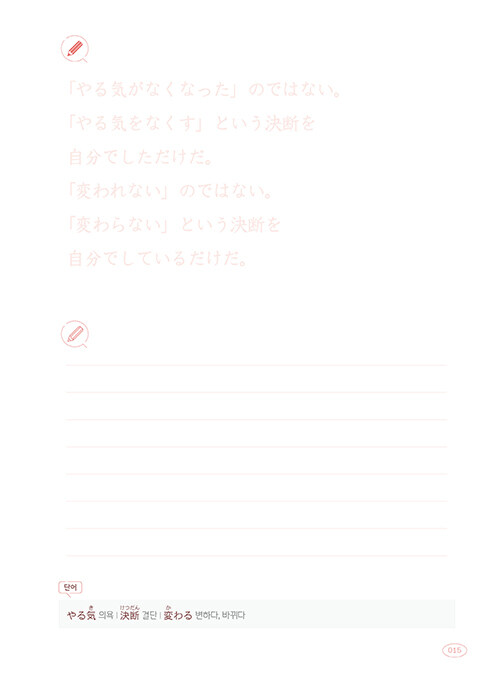 「やる気がなくなった」のではない。
「やる気をなくす」という決断を
自分でしただけだ。
「変われない」のではない。
「変わらない」という決断を
自分でしているだけだ。
단어
やる気き 의욕 | 決断けつだん 결단 | 変かわる 변하다, 바뀌다
015